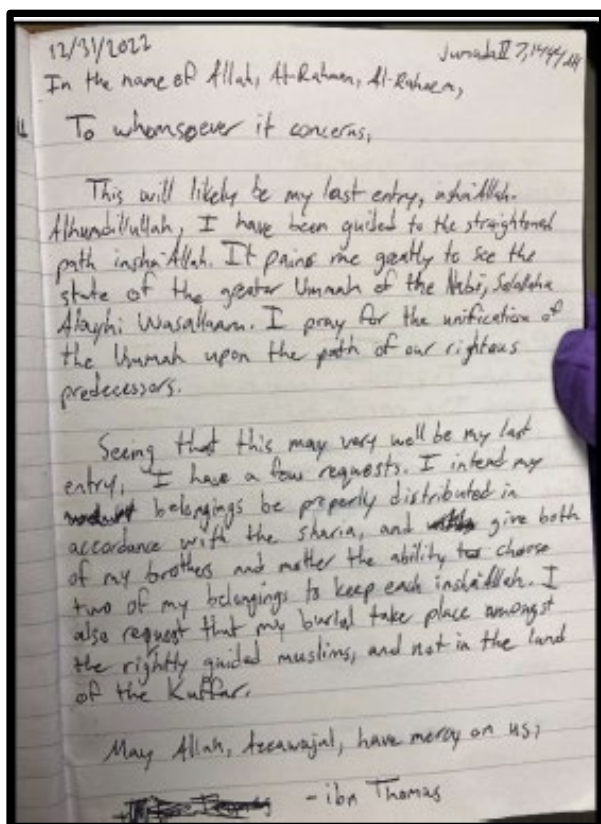 12/31/2022 Jumada II 7, 1444 AH
In the name of Allah, Ar-Rahman, Al-Raheem,
To whomsoever it concerns,
This will likely be my last entry, insha'Allah.
Alhumdillullah, I have been guided to the straightened
path insha'Allah. It pains me greatly to see the
state of the greater Ummah of the Nabi,
Alayhi Wasallaam. I pray for the unification of
the Ummah upon the path of our righteous
predecessors.
Seeing that this may very well be my last
entry, I have a few requests. I intend my
belongings be properly distributed in
accordance with the sharia, and give both
of my brothers and mother the ability to choose
two of my belongings to keep each insha'Allah. I
also request that my burial take place amongst
the rightly guided muslims, and not in the land
of the Kuffar.
May Allah, Azzawajal, have mercy on us,
- ibn Thomas